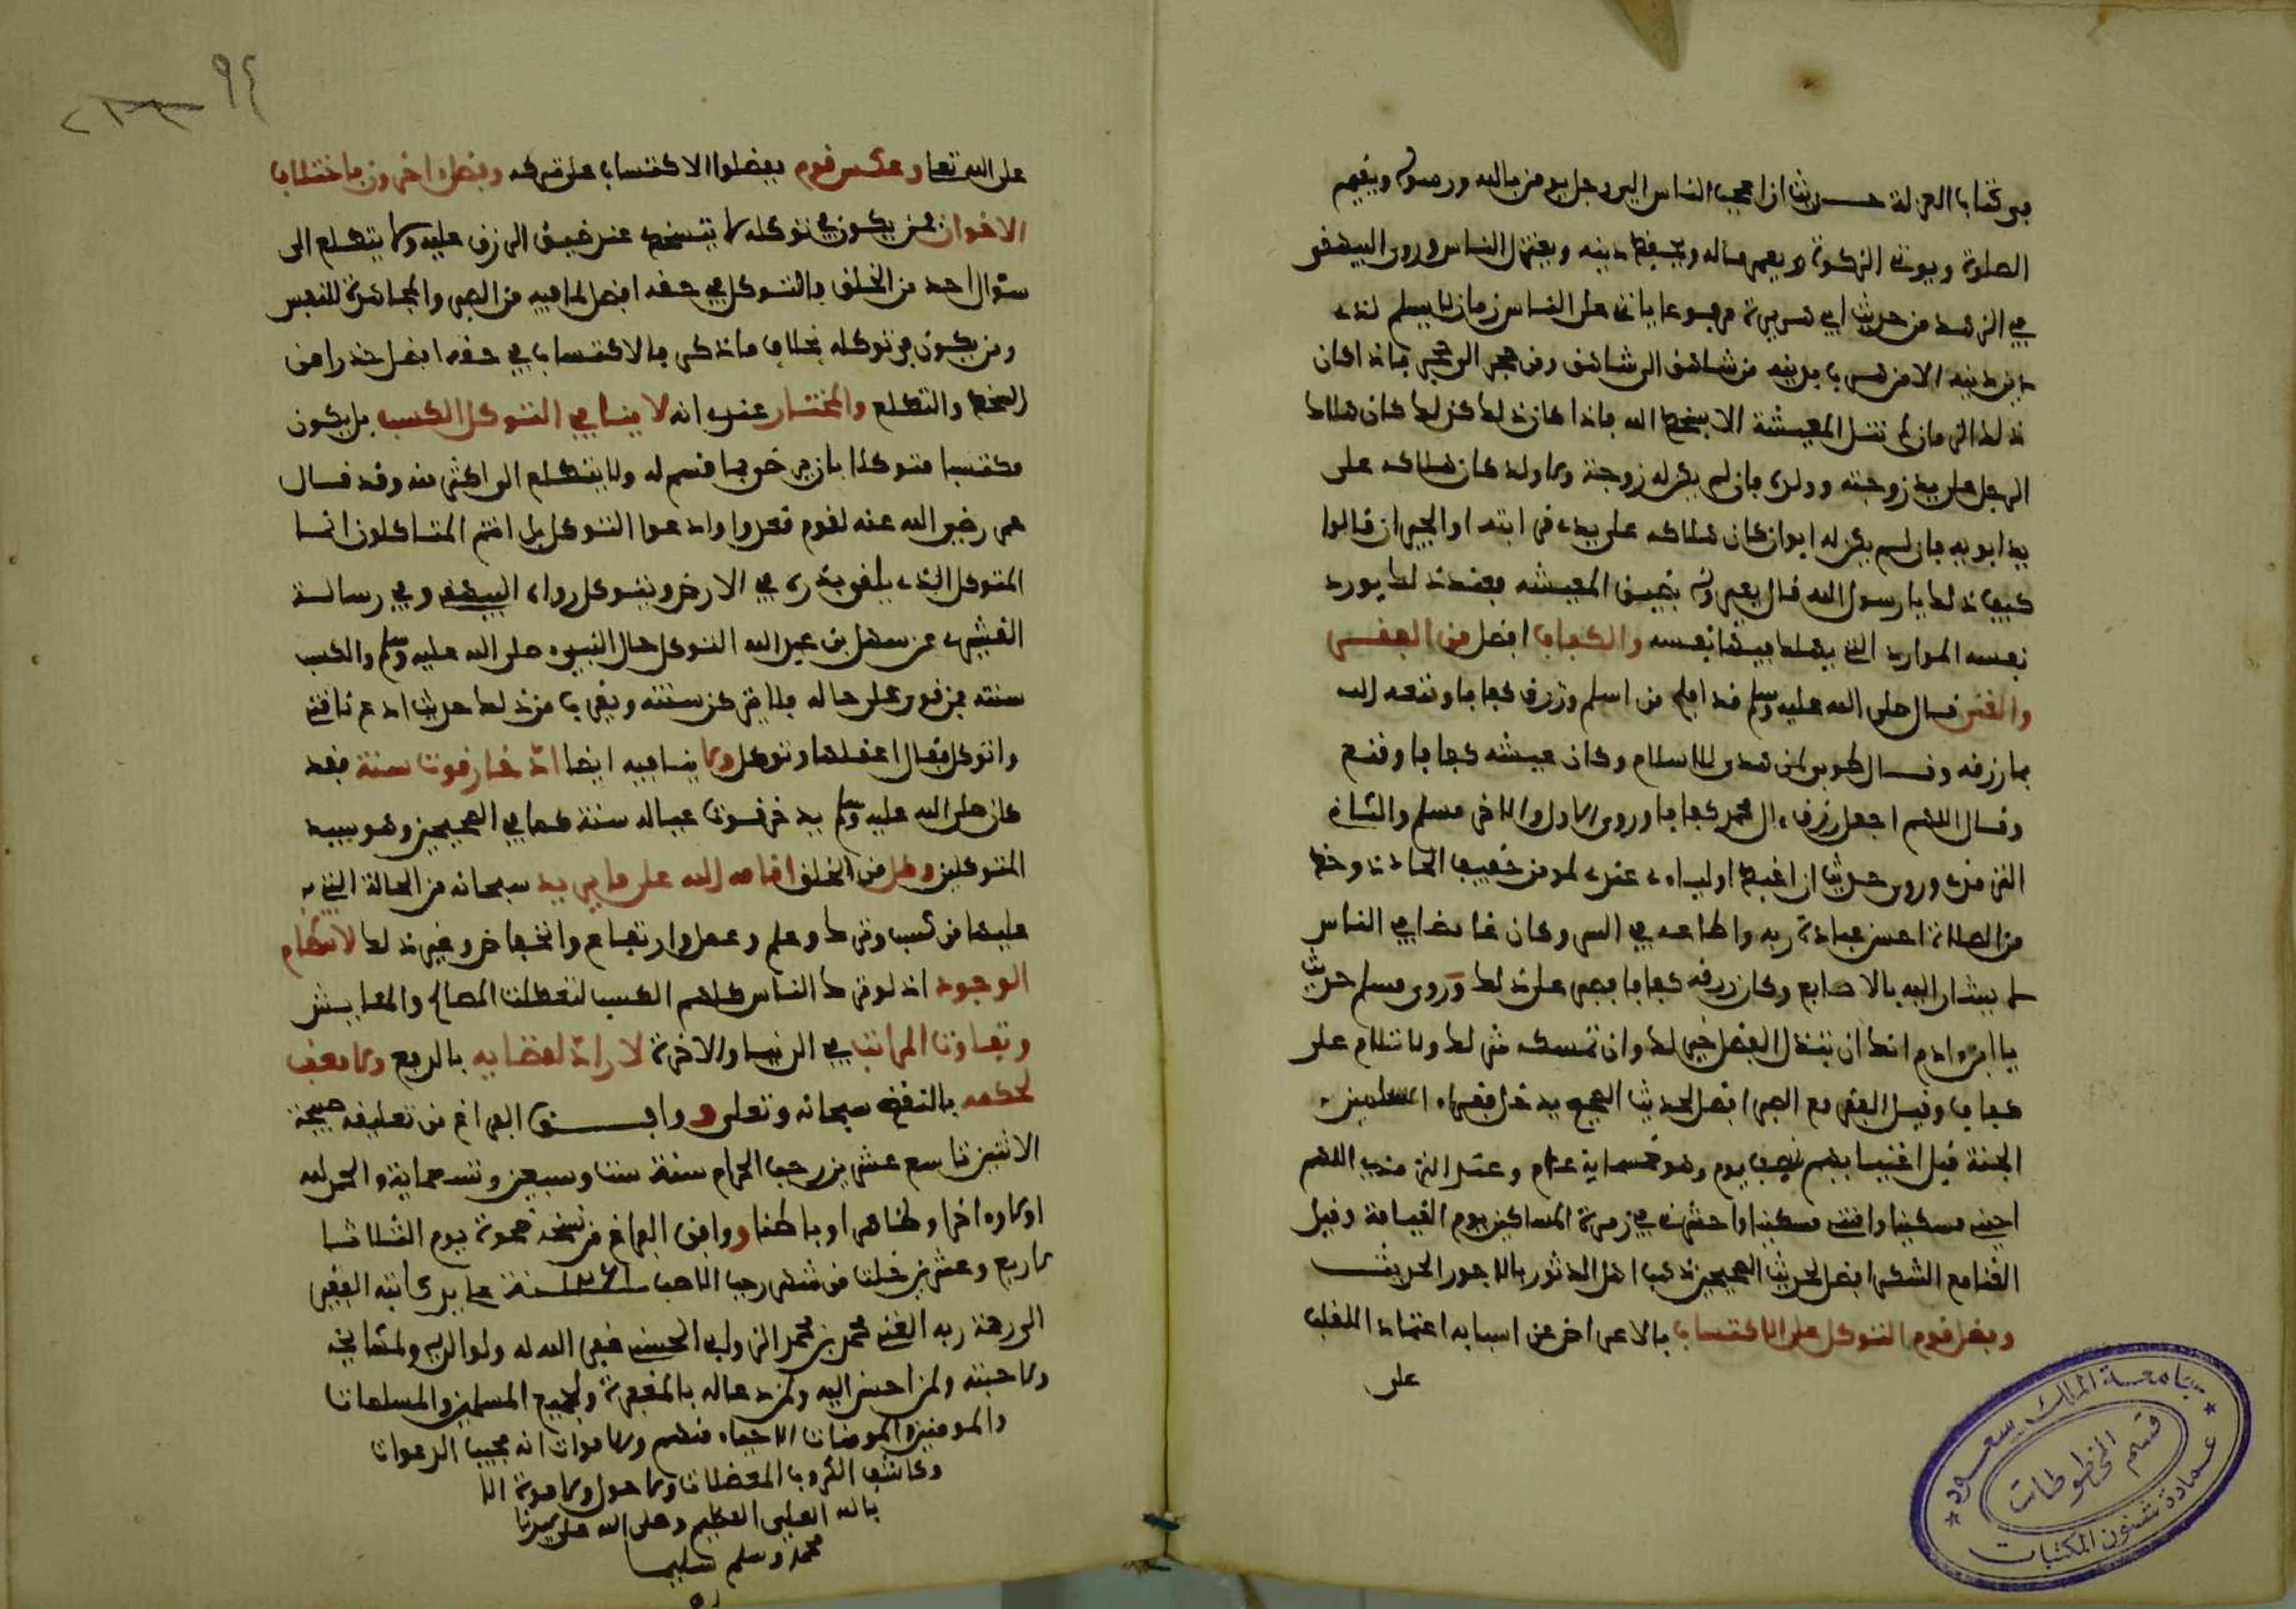 في كتاب العزلة حديث ان اعجب الناس الي رجل يومن بالله ورسوله ويقيم
الصلوة ويوتي الزكوة ويعمر ماله ويحفظ دينه ويعتزل الناس وروى البيهقي
في الزهد من حديث ابي هريرة مرفوعا ياتي على الناس زمان لا يسلم لذي
دين دينه الا من هرب بدينه من شاهق الى شاهق ومن حجر الى حجر فاذا كان
ذلك الزمان لم تنل المعيشة الا بسخط الله فاذا كان ذلك كذلك كان هلاك
الرجل على يد زوجته وولده فان لم يكن له زوجة ولا ولد كان هلاكه على
يد ابويه فان لم يكن له ابوان كان هلاكه على يدي قرابته او الجيران قالوا
كيف ذلك يا رسول الله قال يعيرونه بضيق المعيشة فعند ذلك يورد
نفسه الموارد التي يهلك فيها نفسه والكفاف افضل من الفقر
والغنى قال صلى الله عليه وسلم قد افلح من اسلم ورزق كفافا وقنعه الله
بما رزقه وقال طوبى لمن هدي للاسلام وكان عيشه كفافا وقنع
وقال اللهم اجعل رزق ءال محمد كفافا وروى الاول والاخر مسلم والثاني
الترمذي وروى حديث ان اغبط اوليائي عندي لمومن خفيف الحاذ ذو حظ
من الصلاة احسن عبادة ربه واطاعه في السر وكان غامضا في الناس
لا يشار اليه بالاصابع وكان رزقه كفافا فصبر على ذلك وروى مسلم حديث
يا ابن ءادم انك ان تبذل الفضل خير لك وان تمسكه شر لك ولا تلام على
كفاف وقيل الفقر مع الصبر افضل لحديث الصحيح يدخل فقراء المسلمين
الجنة قبل اغنيائهم بنصف يوم وهو خمسماية عام وعند الترمذي اللهم
احيني مسكينا وامتني مسكينا واحشرني في زمرة المساكين يوم القيامة وقيل
الغنا مع الشكر افضل لحديث الصحيحين ذهب اهل الدثور بالاجور الحديث
وفضل قوم التوكل على الاكتساب بالاعراض عن اسبابه اعتماد القلب
على
جامعة الملك سعود
قسم المخطوطات
عمادة شئون المكتبات
٩٤
على الله تعا وعكس قوم ففضلوا الاكتساب على تركه وفصل اخرون باختلاف
الاخوان فمن يكون في توكله لا يتسخط عند ضيق الرزق عليه ولا يتطلع الى
سؤال احد من الخلق فالتوكل في حقه افضل لما فيه من الصبر والمجاهدة للنفس
ومن يكون في توكله بخلاف ما ذكر فالاكتساب في حقه افضل حذرا من
السخط والتطلع والمختار عندي انه لا ينافي التوكل الكسب بل يكون
مكتسبا متوكلا بان يرضى بما قسم له ولا يتطلع الى اكثر منه وقد قال
عمر رضي الله عنه لقوم قعدوا وادعوا التوكل بل انتم المتاكلون انما
المتوكل الذي يلقي بذره في الارض ويتوكل رواه البيهقي وفي رسالة
القشيري عن سهل بن عبد الله التوكل حال النبيء صلى الله عليه وسلم والكسب
سنته فمن قوي على حاله فلا يتركن سنته ويقرب من ذلك حديث ادع ناقتي
واتوكل فقال اعقلها وتوكل ولا ينافيه ايضا ادخار قوت سنة فقد
كان صلى الله عليه وسلم يدخر قوت عياله سنة كما في الصحيحين وهو سيد
المتوكلين وكل من الخلق اقامه الله على ما يريد سبحانه من الحالة التي
عليها من كسب وترك وعلم وعمل وارتفاع وانخفاض وغير ذلك لانتظام
الوجود اذ لو ترك الناس كلهم الكسب لتعطلت المصالح والمعايش
وتفاوت المراتب في الدنيا والاخرة لا راد لقضايه بالدفع ولا معقب
لحكمه بالنقض سبحانه وتعلى ووافق الفراغ من تعليقه صبيحة
الاثنين تاسع عشرين رجب الحرام سنة ست وسبعين وتسعماية والحمد لله
اولا واخرا وظاهرا وباطنا ووافق الفراغ من نسخه ضحوة يوم الثلاثا
لاربع وعشرين خلت من شهر رجب الاحب سنة على يد كاتبه الفقير
الى رحمة ربه الغني محمد بن محمد الحسني غفر الله له ولوالديه ولمشايخه
ولاحبته ولمن احسن اليه ولمن دعا له بالمغفرة ولجميع المسلمين والمسلمات
والمومنين والمومنات الاحياء منهم والاموات انه مجيب الدعوات
وكاشف الكروب المعضلات ولا حول ولا قوة الا
بالله العلي العظيم وصلى الله على سيدنا
محمد وسلم تسليما